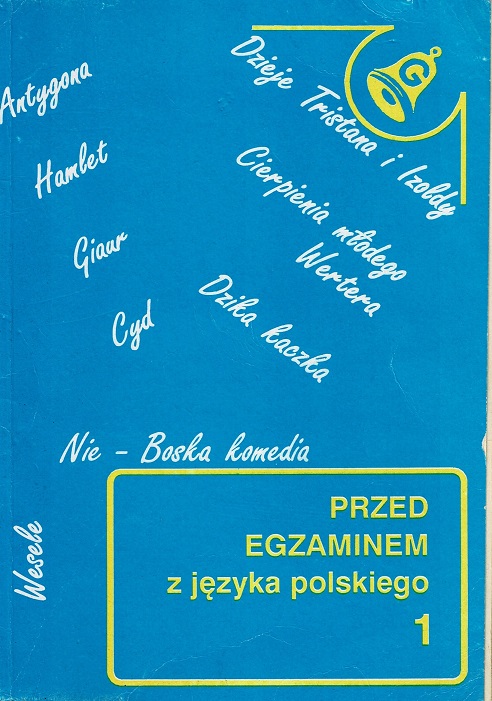 Antygona
Dzieje Tristana i Izoldy
G
Hamlet
Cierpienia młodego
Wertera
Giaur
Dzika kaczka
Cyd
Nie - Boska komedia
Wesele
PRZED
EGZAMINEM
z języka polskiego
1